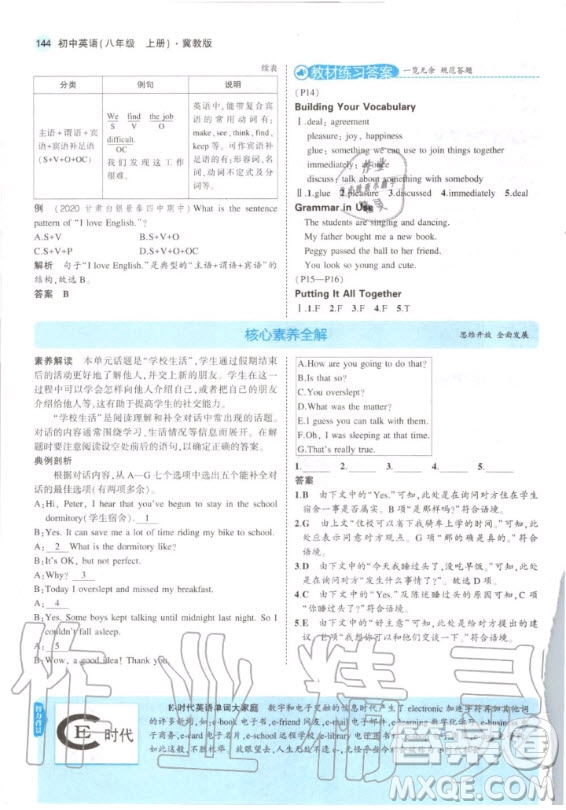 144 初中英语(八年级 上册)·冀教版
续表
分类 例句 说明
主语+谓语+宾语+宾语补足语(S+V+O+OC)
We find the job
S V O
difficult.
OC
我们发现这工作很难。
英语中,能带复合宾语的常用动词有:make, see, think, find, keep等。可作宾语补足语的有:形容词、名词、动词不定式及分词等。
例 (2020 甘肃白银景泰四中期中)What is the sentence
pattern of "I love English."?
A.S+V B.S+V+O
C.S+V+P D.S+V+O+OC
解析 句子"I love English."是典型的"主语+谓语+宾语"的
结构,故选B。
答案 B
教材练习答案 一览无余 规范答题
(P14)
Building Your Vocabulary
Ⅰ.deal; agreement
pleasure; joy, happiness
glue; something we can use to join things together
immediately;
discuss; talk about something with someone
Ⅱ.1.glue 2.pleasure 3.discussed 4.immediately 5.deal
Grammar in Use
The students are singing and dancing.
My father bought me a new book.
Peggy passed the ball to her friend.
You look cute and colourful.
(P15—P16)
Putting It All Together
Ⅰ.1.F 2.F 3.F 4.F 5.T
核心素养全解 思维开放 全面发展
素养解读 本单元话题是"学校生活",学生通过假期结束
后的活动更好地了解他人,并交上新的朋友。学生要在这一
过程中可以掌握怎样向他人介绍自己,以及把自己的朋友
介绍给其他人,这有助于提高学生的社交能力。
"学校生活"是阅读理解和补全对话中常出现的话题。
对话的内容通常围绕学习、生活等方面而展开,做题时
要注意阅读设空处前后的信息,以确定正确的答案。
典例剖析
根据对话内容,从A—G七个选项中选出五个能补全对
话的最佳选项(有两项多余)。
A: Hi, Peter, I hear that you've begun to stay in the school
dormitory(学生宿舍). 1
B: Yes. It can save me a lot of time riding my bike to school.
A: 2 What is the dormitory like?
B: It's OK, but not perfect.
A: Why? 3
B: Today I overslept and missed my breakfast.
A: 4
B: Yes. Some boys kept talking until midnight last night. So I
couldn't fall asleep.
A: 5
B: Wow, a good idea! Thank you.
A.How are you going to do that?
B.Is that so?
C.You overslept?
D.What was the matter?
E.I guess you can talk with them.
F.Oh, I was sleeping at that time.
G.That's really true.
1. 2. 3. 4. 5.
答案
1.B 由下文中的"Yes."可知,此处是在询问对方住在学生
宿舍一事是否属实。B项"是那样吗?"符合语境。
2.G 由上文"住校可以省下我骑车上学的时间。"可知,此
处应表示同意对方观点。G项"那的确是真的。"符
合语境。
3.D 由下文中的"今天我睡过头了,没吃早饭。"可知,此处
应是询问对方"发生什么事情了?"故选D项。
4.C 由下文中的"Yes."及陈述睡过头的原因可知,C项
"你睡过头了?"符合语境。
5.E 由下文中的"好主意"可知,此处应是在向对方提建
议。E项"我想你可以和他们谈一谈。"符合语境。
智力背景
E时代
E-时代英语单词大家庭 数字和电子交融的信息时代产生了electronic加连字符再加其他词
的形式,如:e-book 电子书,e-friend 网友,e-mail 电子邮件,e-business 电
子商务,e-card 电子贺卡,e-school 远程学校
作业精灵
MXQE.COM